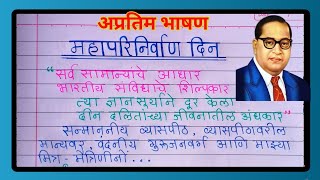 अप्रतिम भाषण
महापरिनिर्वाण दिन
"सर्व सामान्यांचे आधार
भारतीय संविधाचे शिल्पकार
त्या ज्ञानसूर्याने दूर केला
दीन दलितांच्या जीवनातील अंधकार"
सन्माननीय व्यासपीठ, व्यासपीठावरील
मान्यवर, वंदनीय गुरुजनवर्ग आणि माझ्या
मित्र-मैत्रिणींनों...